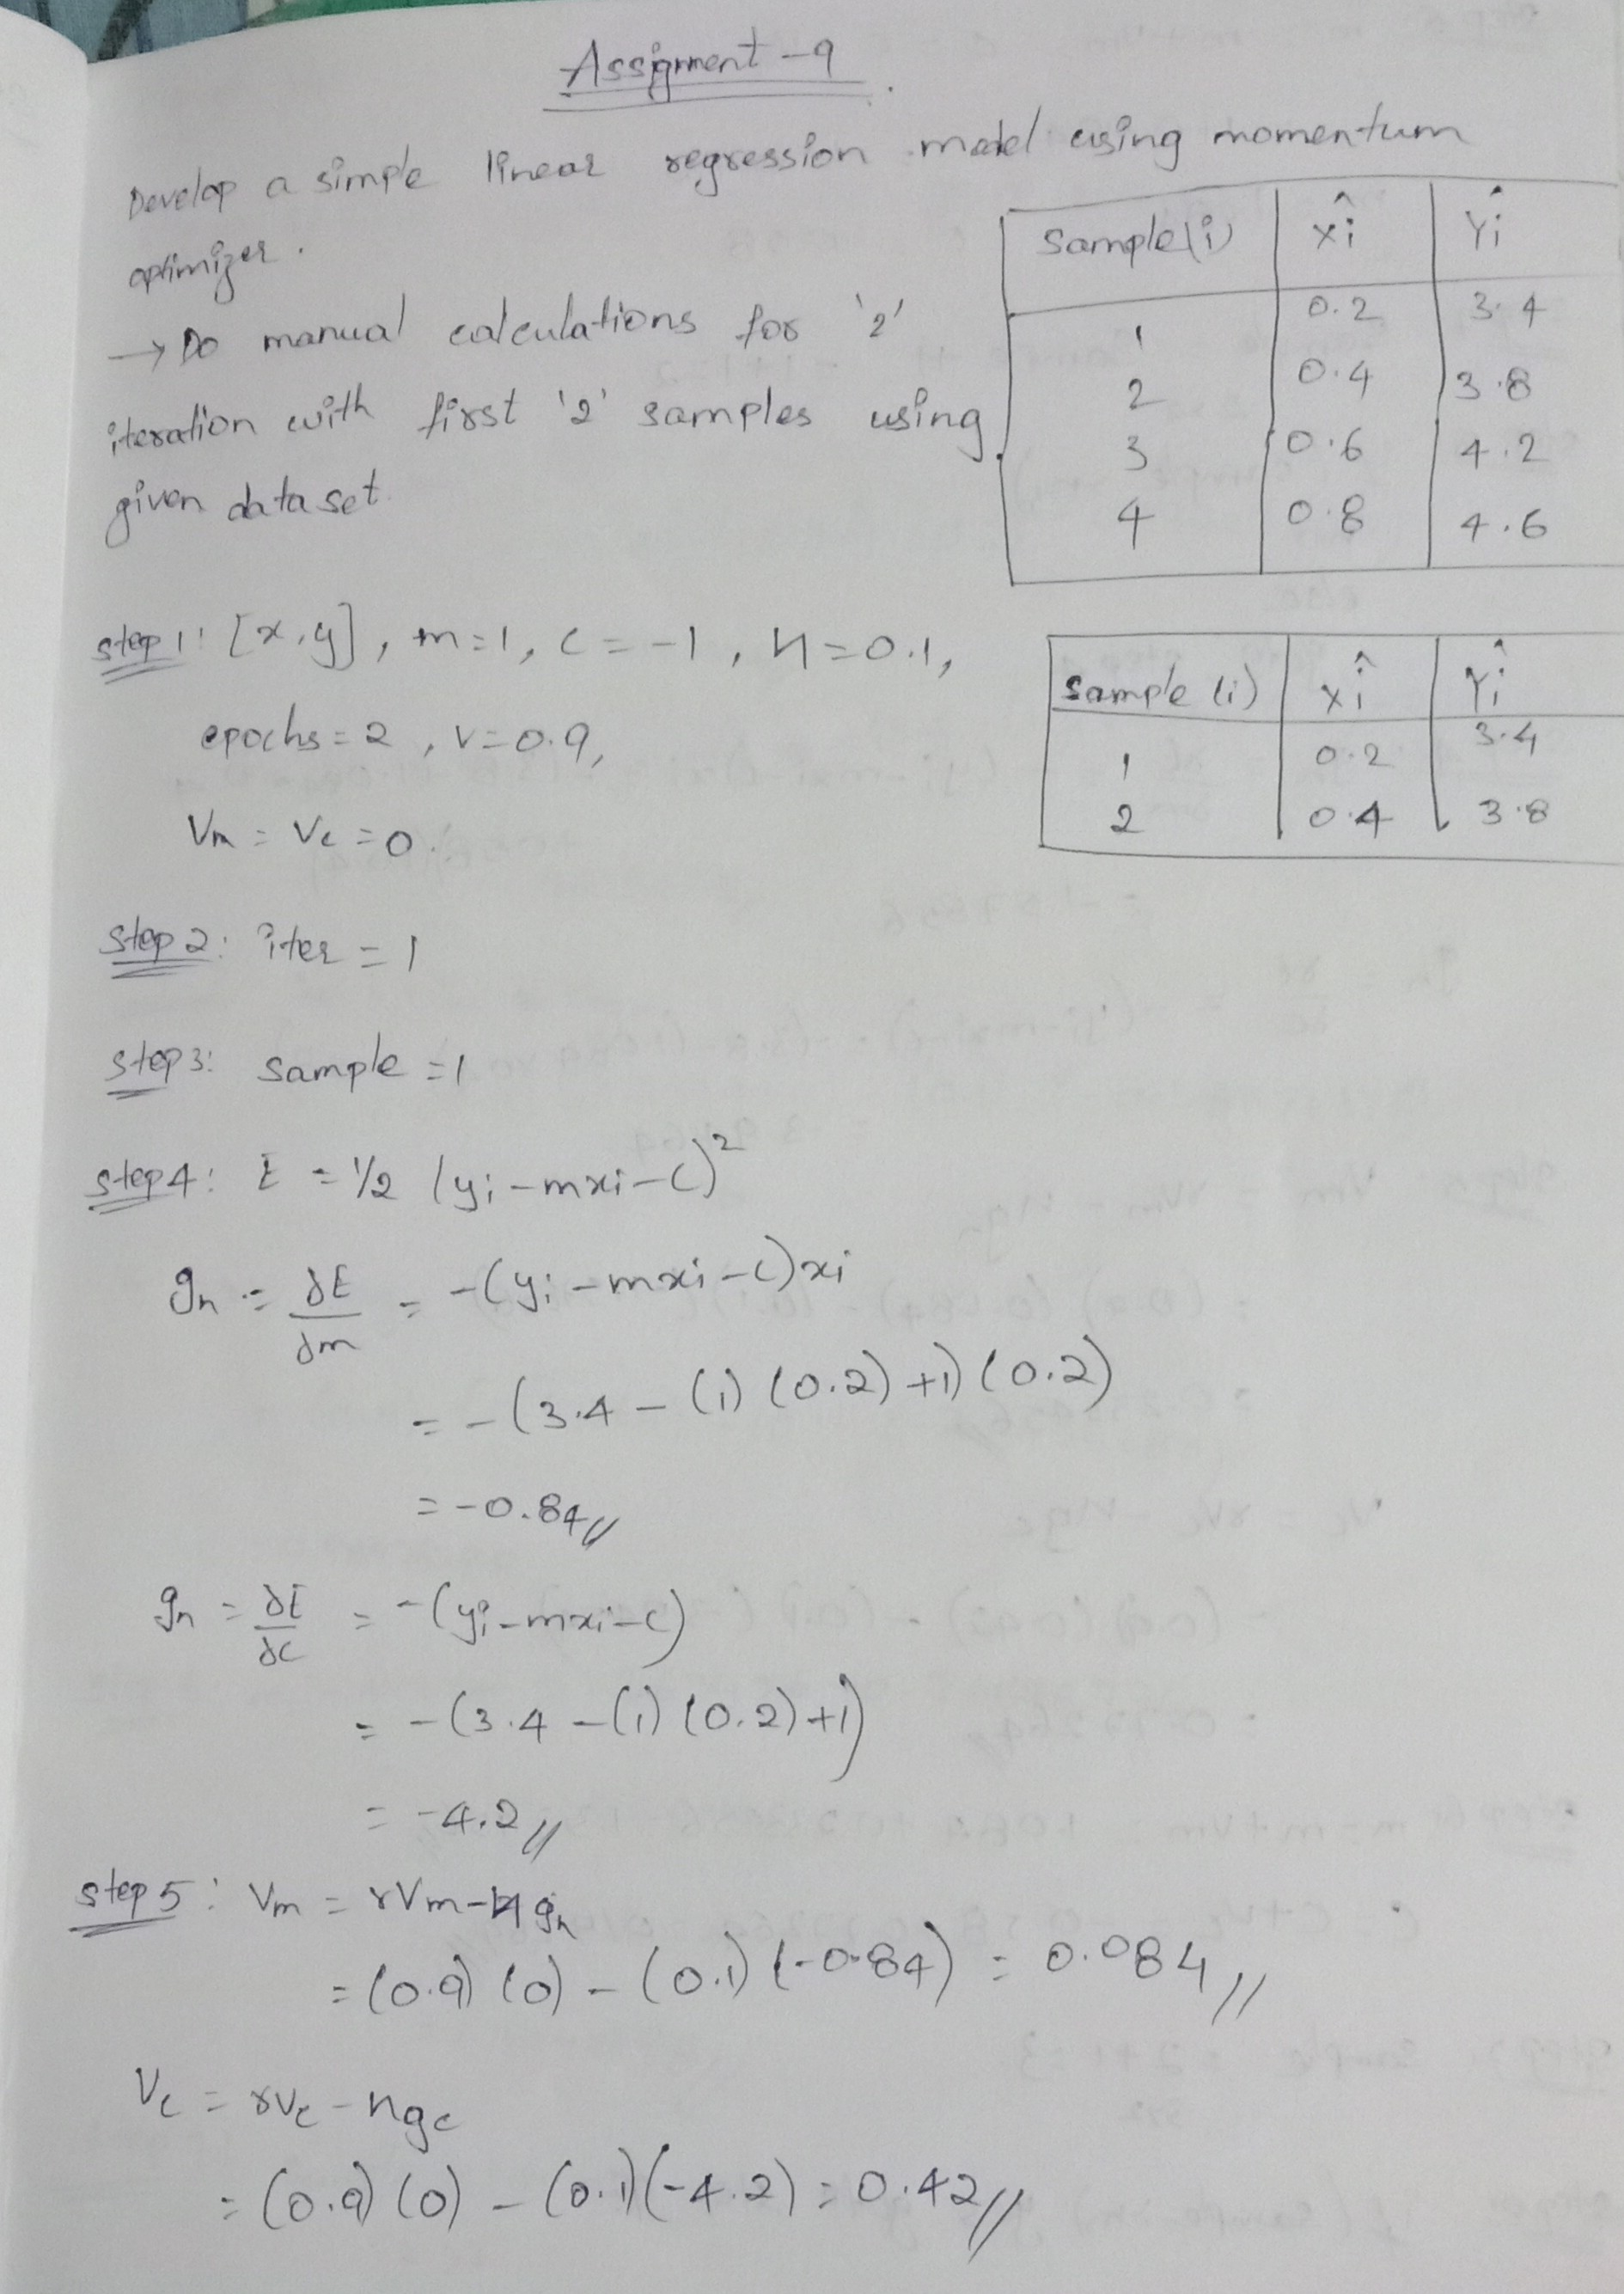 Assignment - 9
Develop a simple linear regression model using momentum
optimizer.
→ Do manual calculations for '2'
iteration with first '2' samples using
given dataset.
Sample(i) x̂i ŷi
1 0.2 3.4
2 0.4 3.8
3 0.6 4.2
4 0.8 4.6
step 1: [x,y], m=1, c=-1, η=0.1,
epochs=2, γ=0.9,
Vm = Vc = 0.
Sample (i) x̂i ŷi
1 0.2 3.4
2 0.4 3.8
step 2: iter = 1
step 3: sample = 1
step 4: E = 1/2 (yi - mxi - c)²
gn = ∂E/∂m = -(yi - mxi - c)xi
= -(3.4 - (1)(0.2)+1)(0.2)
= -0.84//
gn = ∂E/∂c = -(yi - mxi - c)
= -(3.4 - (1)(0.2)+1)
= -4.2//
step 5: Vm = γVm - ηgn
= (0.9)(0) - (0.1)(-0.84) = 0.084//
Vc = γVc - ηgc
= (0.9)(0) - (0.1)(-4.2) = 0.42//